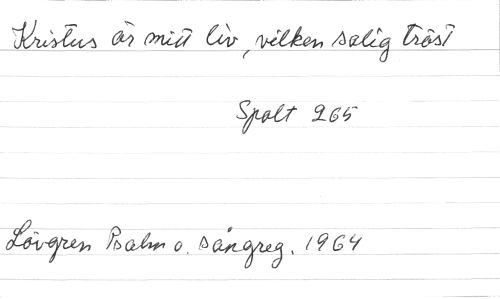 Kristus är mitt liv, vilken salig tröst
Spalt 265
Lövgren Psalm o. sångreg. 1964